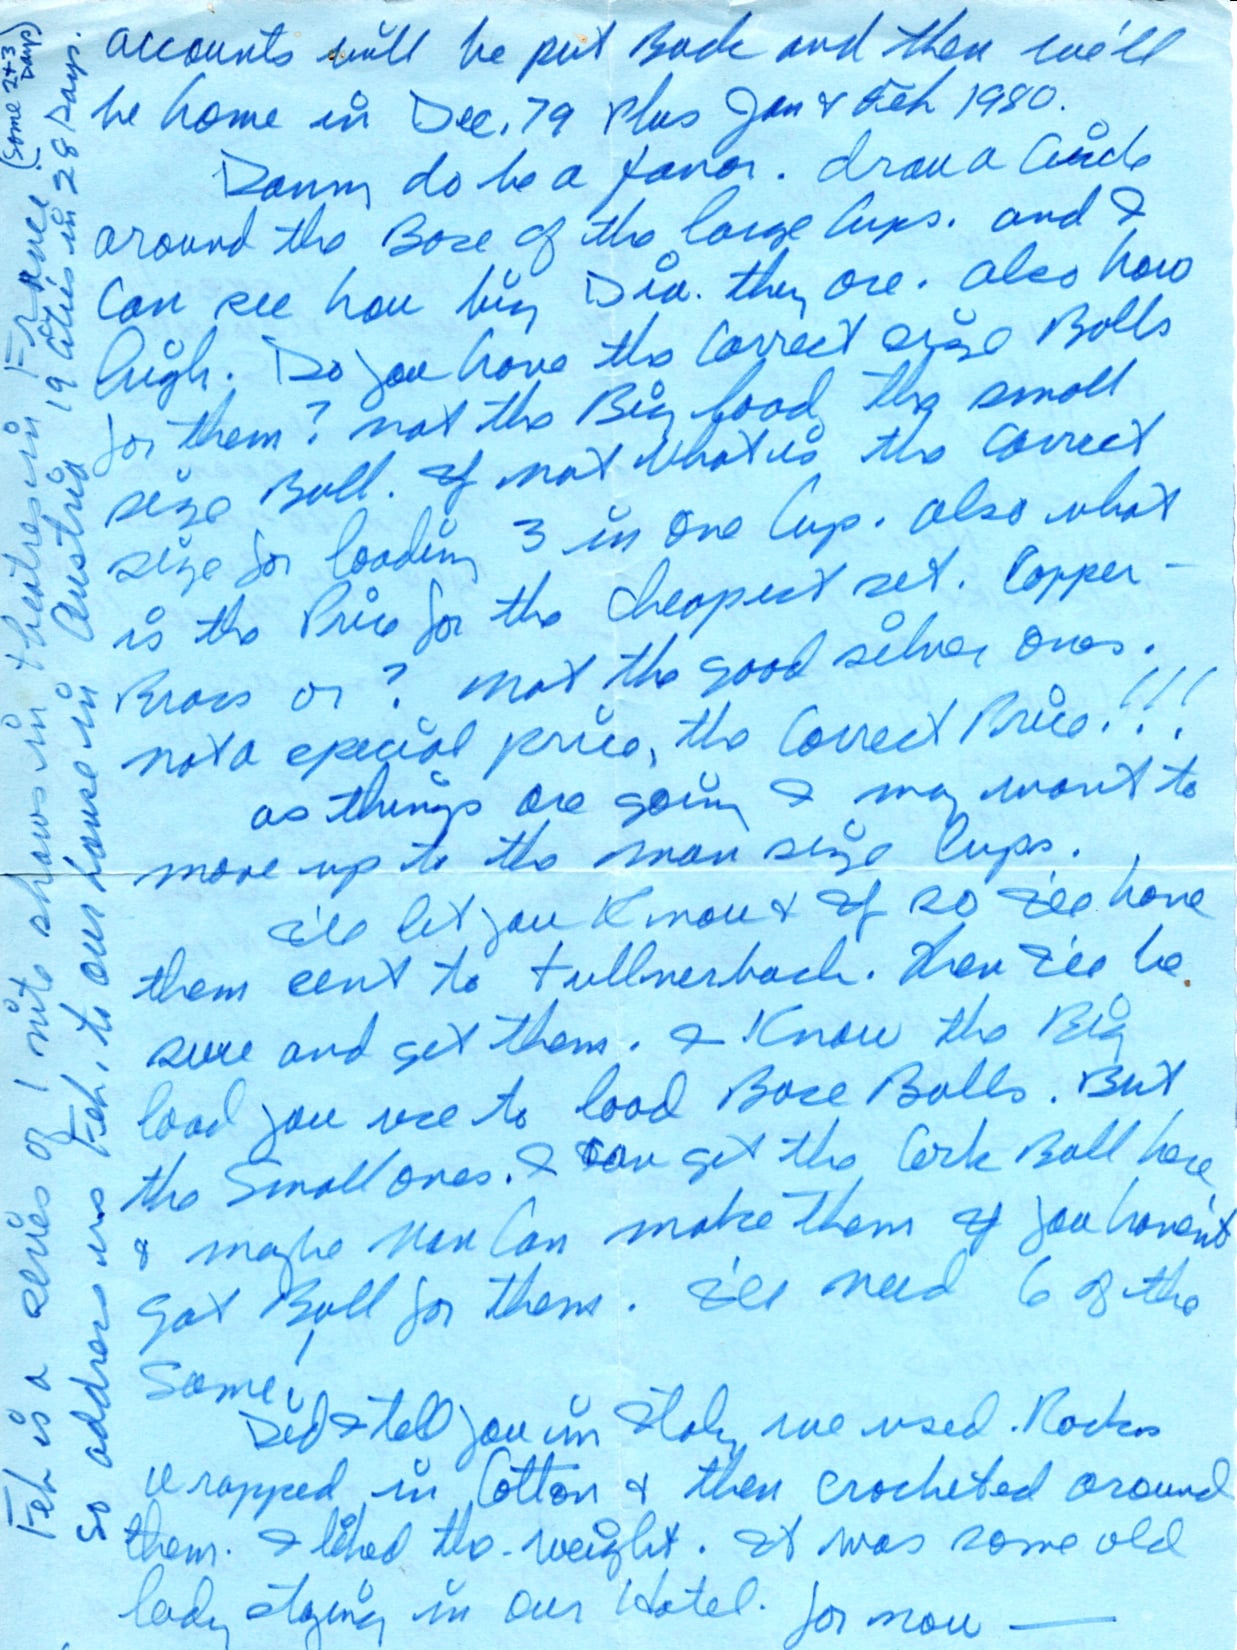 accounts will be put Back and then we'll
be home in Dec. 79 Plus Jan & Feb 1980.
Danny do be a favor. draw a Circle
around the Base of the large Cups. and I
Can see how big Dia. they are. also how
high. Do you have the Correct size Balls
for them? not the Big load, the small
size Ball. If not what is the Correct
size for loading 3 in one Cup. also what
is the Price for the cheapest set. Copper -
Brass or ? not the good silver ones.
not a special price, the Correct Price.!!!
as things are going I may want to
move up to the man size Cups.
I'le let you Know & If so I'le have
them sent to tullnerbach. then I'le be
sure and get them. I Know the Big
load you use to load Base Balls. But
the Small ones. I can get the Cork Ball here
& maybe Nan Can make them if you haven't
got Ball for them. I'le need 6 of the
Same!
Did I tell you in Italy we used Rocks
wrapped in Cotton & then crocheted around
them. I liked the weight. It was some old
lady staying in our Hotel. for now —
Feb is a series of 1 nite shows in theatres in France (some 2+3 Days)
So address us Feb, to our house in Austria 19 Cities in 28 Days.